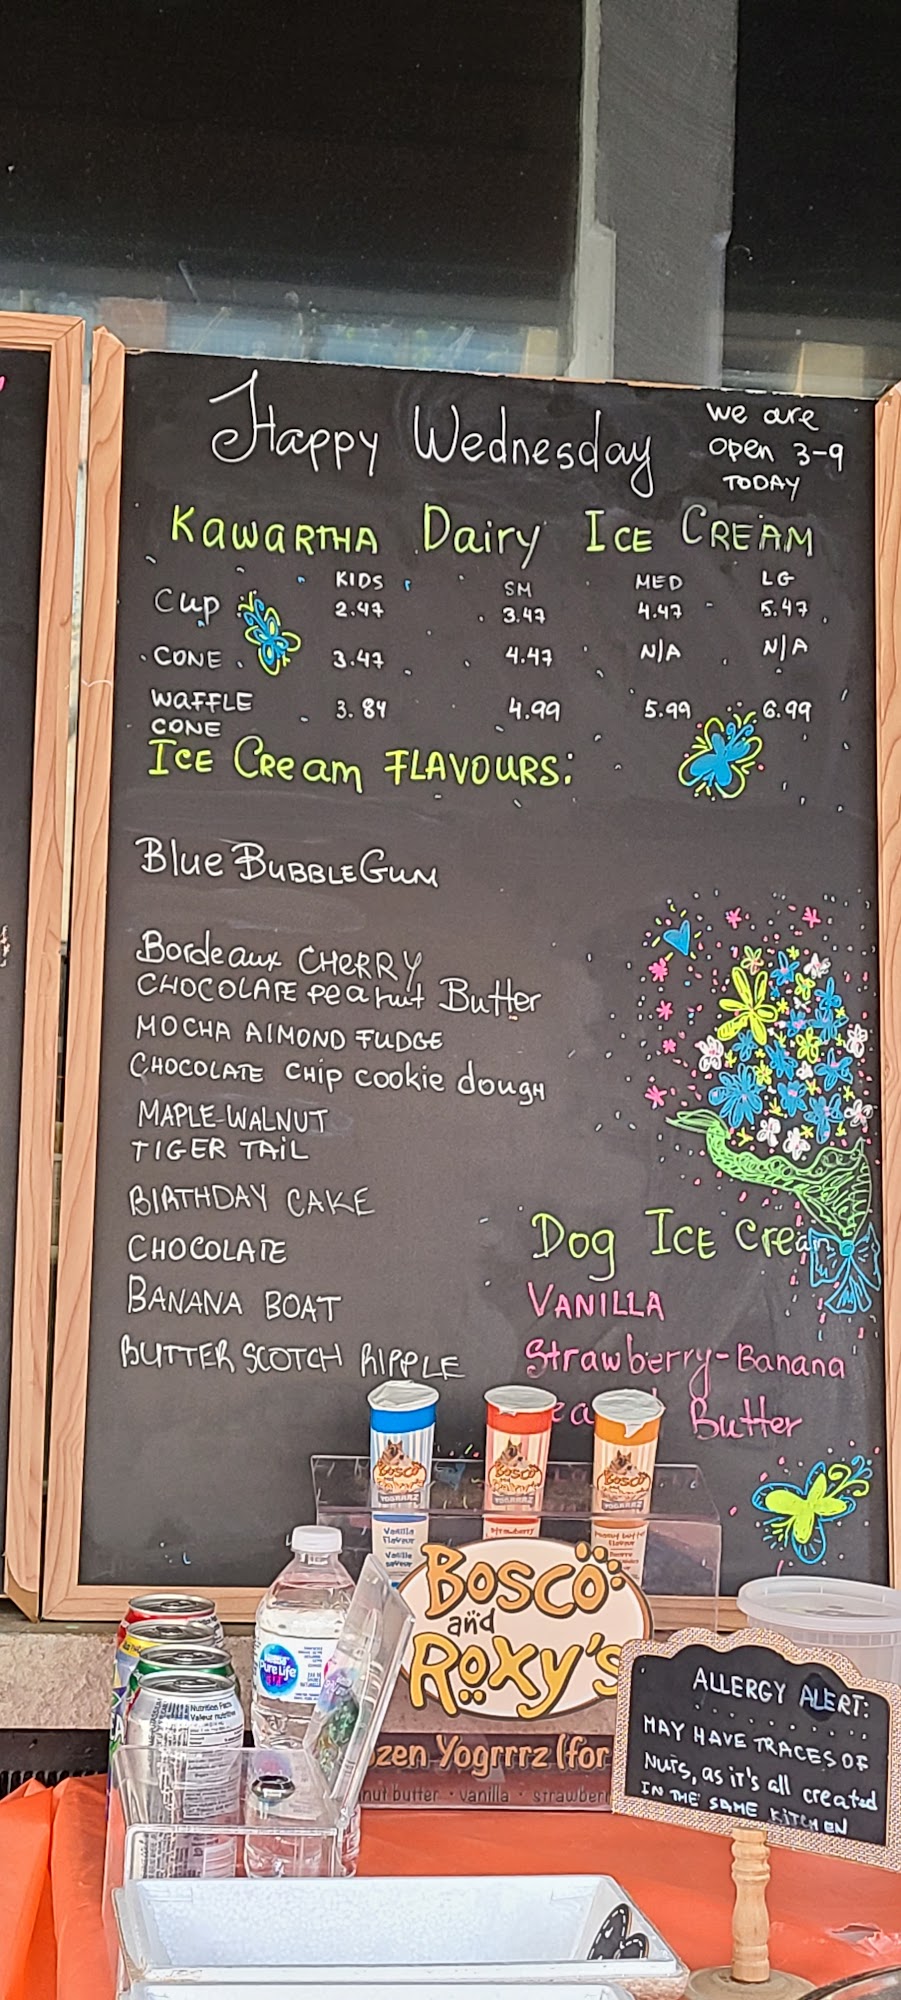 Happy Wednesday
we are
open 3-9
TODAY
KAWARTHA Dairy ICE CREAM
KIDS SM MED LG
Cup 2.47 3.47 4.47 5.47
CONE 3.47 4.47 N/A N/A
WAFFLE CONE 3.84 4.99 5.99 6.99
ICE CReam FLAVOURS:
Blue BUBBLEGUM
Bordeaux CHERRY
CHOCOLATE peanut Butter
MOCHA AlMOND FUDGE
CHOCOLATE CHip cookie dough
MAPLE-WALNUT
TIGER TAIL
BIRTHDAY CAKE
CHOCOLATE
BANANA BOAT
BUTTERSCOTCH RIPPLE
Dog ICE Cream
VANILLA
Strawberry-Banana
Butter
BOSCO
BOSCO
BOSCO
Vanilla
flavour
Vanille
Strawberry
BOSCO
and
ROXY'S
zen Yogrrrz (for
nut butter • vanilla • strawber
Nutrition Facts
Valeur nutritive
Nestlé
Pure Life
ALLERGY ALERT:
MAY HAVE TRACES OF
NUTS, as it's all created
IN THE SAME KITCHEN